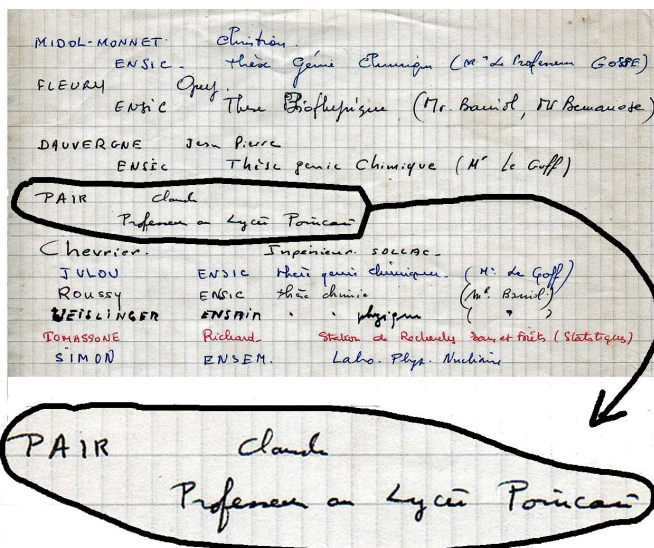 MIDOL-MONNET Christian.
ENSIC. thèse Génie Chimique (Mr Le Professeur GOSSE)
FLEURY
ENSIC These (Mr. Bariol, Mr
DAUVERGNE Jean Pierre
ENSIC Thèse genie Chimique (Mr Le Goff)
PAIR Claude
Professeur au Lycée Poincaré
Chevrier. Ingénieur SOLLAC-
JULOU ENSIC thèse genie chimique. (Mr. Le Goff)
Roussy ENSIC thèse chimie (Mr. Bariol)
WEISLINGER ENSAIA " " physique ( " " )
TOMASSONE Richard_ Station de Recherches Sols et Forêts (Statistiques)
SIMON ENSEM. Labo. Phys. Nucléaire
PAIR Claude
Professeur au Lycée Poincaré